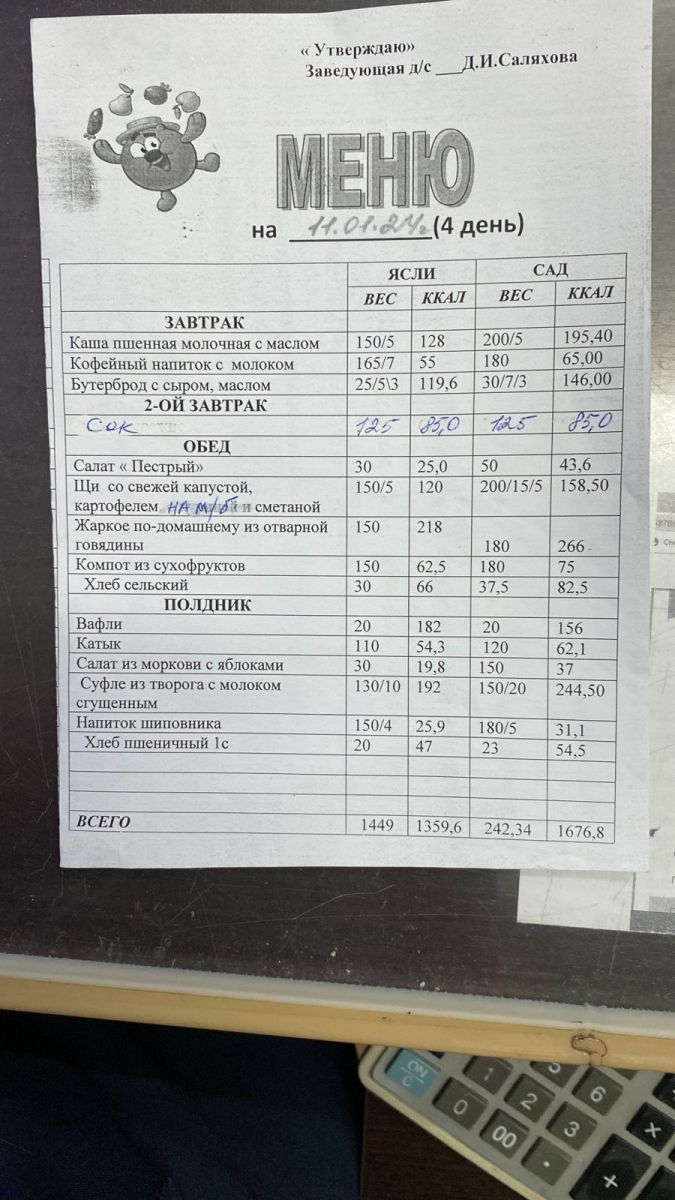 « Утверждаю»
Заведующая д/с ___Д.И.Саляхова
МЕНЮ
на 11.01.24г (4 день)
ЯСЛИ САД
ВЕС ККАЛ ВЕС ККАЛ
ЗАВТРАК
Каша пшенная молочная с маслом 150/5 128 200/5 195,40
Кофейный напиток с молоком 165/7 55 180 65,00
Бутерброд с сыром, маслом 25/5\3 119,6 30/7/3 146,00
2-ОЙ ЗАВТРАК
Сок 125 85,0 125 85,0
ОБЕД
Салат « Пестрый» 30 25,0 50 43,6
Щи со свежей капустой, 150/5 120 200/15/5 158,50
картофелем на м/б и сметаной
Жаркое по-домашнему из отварной 150 218
говядины 180 266
Компот из сухофруктов 150 62,5 180 75
Хлеб сельский 30 66 37,5 82,5
ПОЛДНИК
Вафли 20 182 20 156
Катык 110 54,3 120 62,1
Салат из моркови с яблоками 30 19,8 150 37
Суфле из творога с молоком 130/10 192 150/20 244,50
сгущенным
Напиток шиповника 150/4 25,9 180/5 31,1
Хлеб пшеничный 1с 20 47 23 54,5
ВСЕГО 1449 1359,6 242,34 1676,8
ON
C
1
2
3
6
0
00
.
×
+